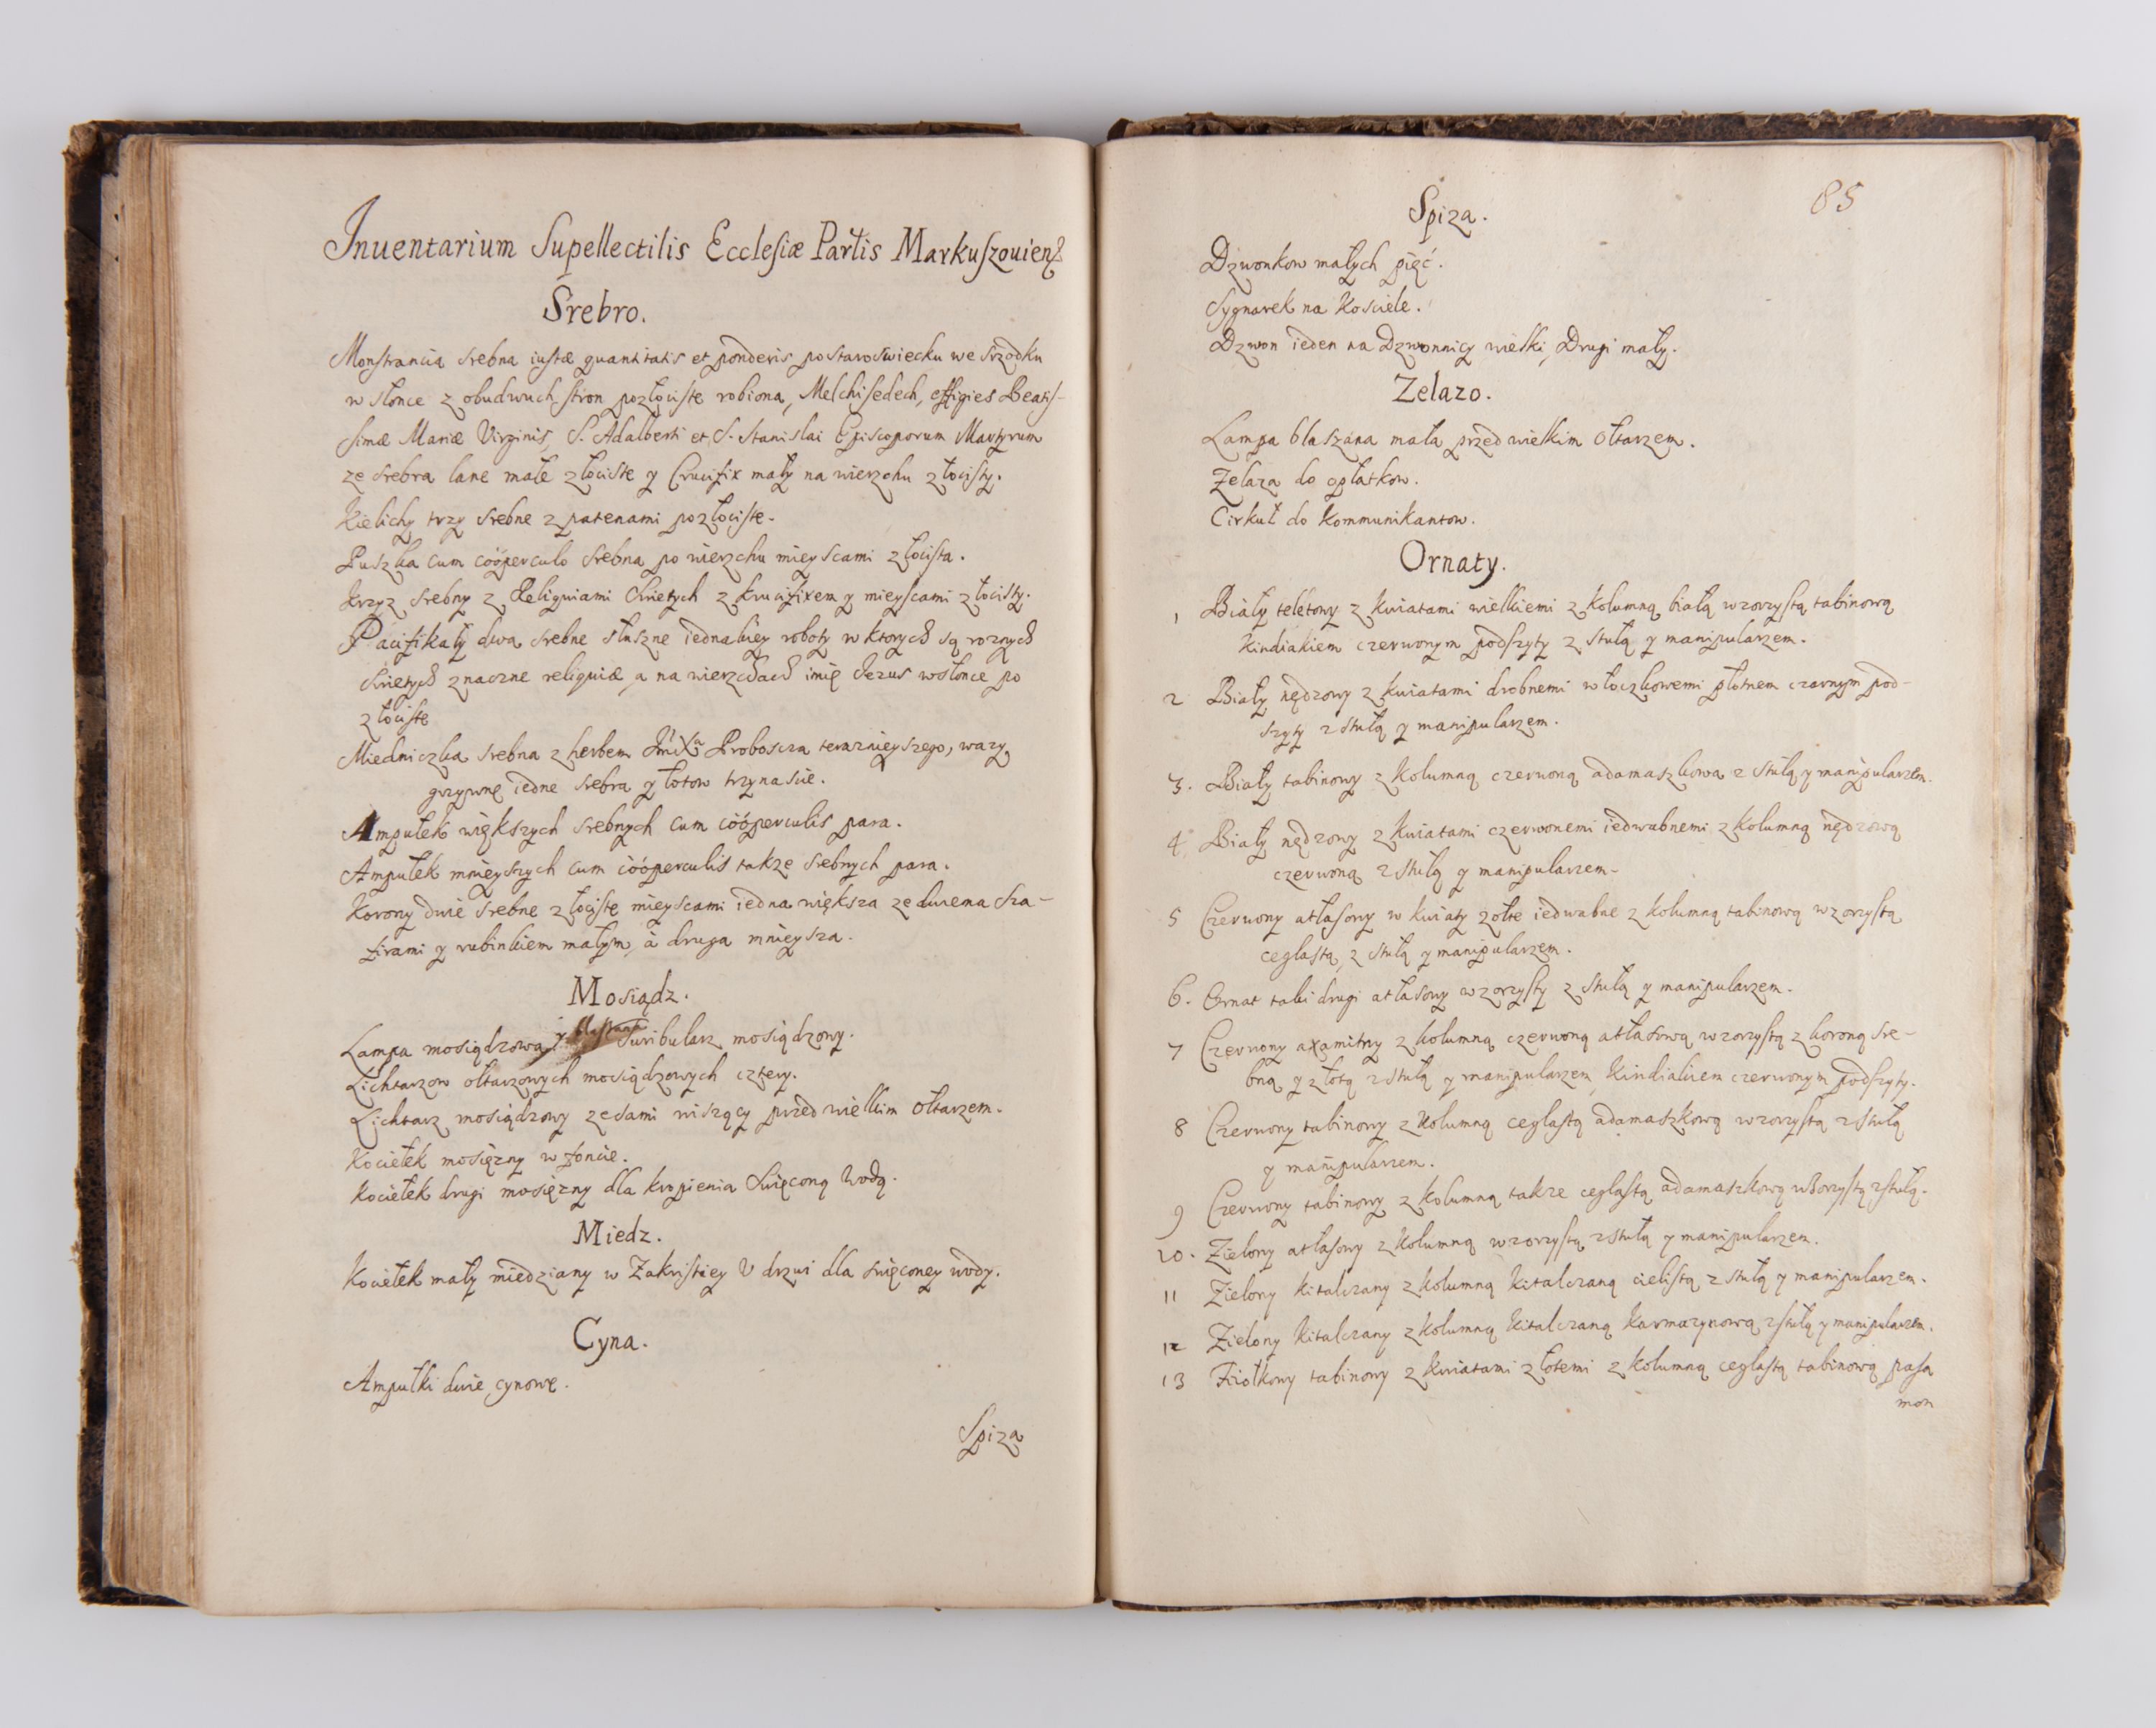 Inuentarium Supellectilis Ecclesiæ Partis Markuszouiens
Srebro.
Monstrancia srebna iustæ quantitatis et ponderis po staroswiecku we srzodku
w słonce z obudwuch stron pozłociste robiona, Melchisedech, effigies Beatis-
simæ Mariæ Virginis, S. Adalberti et S. Stanislai Episcoporum Martyrum
ze srebra lane małe złociste y Crucifix mały na wierzchu złocisty.
Kielichy trzy srebne z patenami pozłociste.
Puszka cum coóperculo srebna po wierzchu mieyscami złocista.
Krzyz srebny z Reliquiami Swietych z krucifixem y mieyscami złocisty.
Pacifikały dwa srebne słuszne iednakiey roboty w ktorych są roznych
Swietych znaczne reliquiæ, a na wierzchach imię Jezus w słonce po
złociste
Miedniczka srebna z herbem Proboszcza terazniejszego, wazy
grzywnę iedne srebra y łotow trzynascie.
Ampułek większych srebnych cum coóperculis para.
Ampułek mnieyszych cum coóperculis takze srebnych para.
Korony dwie srebne złociste mieyscami iedna większa ze dwiema Sza-
firami y rubinkiem małym, à druga mnieysza.
Mosiądz.
Lampa mosiądzowa y blaszana Turibularz mosiądzony.
Lichtarzow ołtarzowych mosiądzowych cztery.
Lichtarz mosiądzowy zesami wiszący przed wielkim ołtarzem.
Kociełek mosięzny w foncie.
Kociełek drugi mosięzny dla kropienia Swięconą Wodą.
Miedz.
Kociełek mały miedziany w Zakristiey U drzwi dla swięconey wody.
Cyna.
Ampułki dwie cynowe.
Spiza
85
Spiza.
Dzwonkow małych pięć.
Sygnarek na Kosciele.
Dzwon ieden na Dzwonnicy wielki, Drugi mały.
Zelazo.
Lampa blaszana mała przed wielkim Ołtarzem.
Zelaza do opłatkow.
Cirkuł do kommunikantow.
Ornaty.
1 Biały teletowy z kwiatami wielkiemi z kolumną białą wzorzystą tabinową
kindiakiem czerwonym podszyty z stułą y manipularzem.
2 Biały nędzowy z kwiatami drobnemi włoczkowemi płotnem czarnym pod-
szyty z stułą y manipularzem.
3. Biały tabinowy z kolumną czerwoną adamaszkowa z stułą y manipularzem.
4 Biały nędzowy z kwiatami czerwonemi iedwabnemi z kolumną nędzową
czerwoną z stułą y manipularzem.
5 Czerwony atłasowy w kwiaty zołte iedwabne z kolumną tabinową wzorzystą
ceglastą z stułą y manipularzem.
6. Ornat taki drugi atłasowy wzorzysty z stułą y manipularzem.
7 Czerwony axamitny z kolumną czerwoną atłasową wzorzystą z koroną sre-
bną y złotą z stułą y manipularzem, Kindiakiem czerwonym podszyty.
8 Czerwony tabinowy z kolumną ceglastą adamaszkową wzorzystą z stułą
y manipularzem.
9 Czerwony tabinowy z kolumną takze ceglastą adamaszkową wzorzystą z stułą.
10. Zielony atłasowy z kolumną wzorzystą z stułą y manipularzem.
11 Zielony kitalczany z kolumną kitalczaną cielistą z stułą y manipularzem.
12 Zielony kitalczany z kolumną kitalczaną karmazynową z stułą y manipularzem.
13 Fiołkowy tabinowy z kwiatami złotemi z kolumną ceglastą tabinową pasa
mon